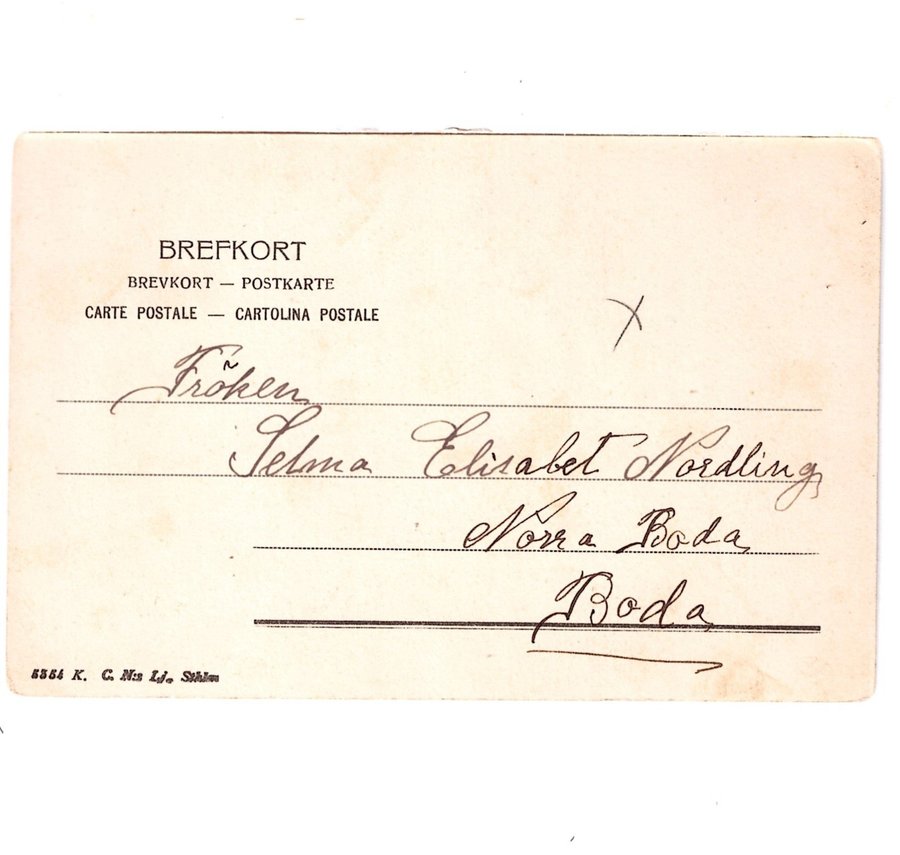 BREFKORT
BREVKORT — POSTKARTE
CARTE POSTALE — CARTOLINA POSTALE
Fröken
Selma Elisabet Nordling,
Norra Boda,
Boda,
5354 K. C. N:s Lj., Sthlm